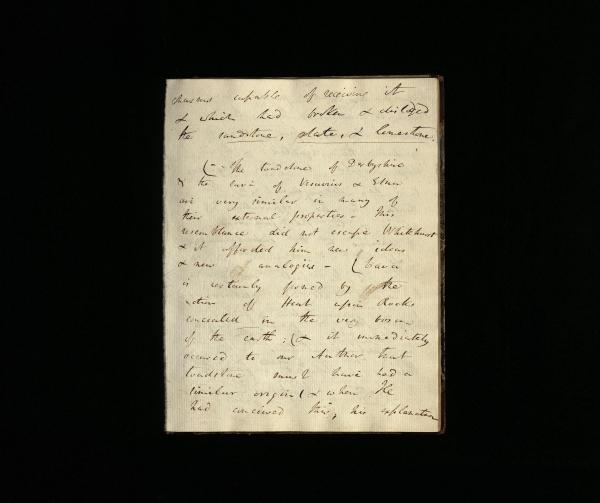 chasms capable of receiving it
& which had broken & dislodged
the sandstone, slate, & limestone.
(– The toadstone of Derbyshire
& the lava of Vesuvius & Etna
are very similar in many of
their external properties – This
resemblance did not escape Whitehurst
& it afforded him new ideas
& new analogies – (Lava
is certainly formed by the
action of Heat upon Rocks
concealed in the very bosom
of the earth; (& it immediately
occurred to our Author that
toadstone must have had a
similar origin (& when He
had conceived this, his explanation